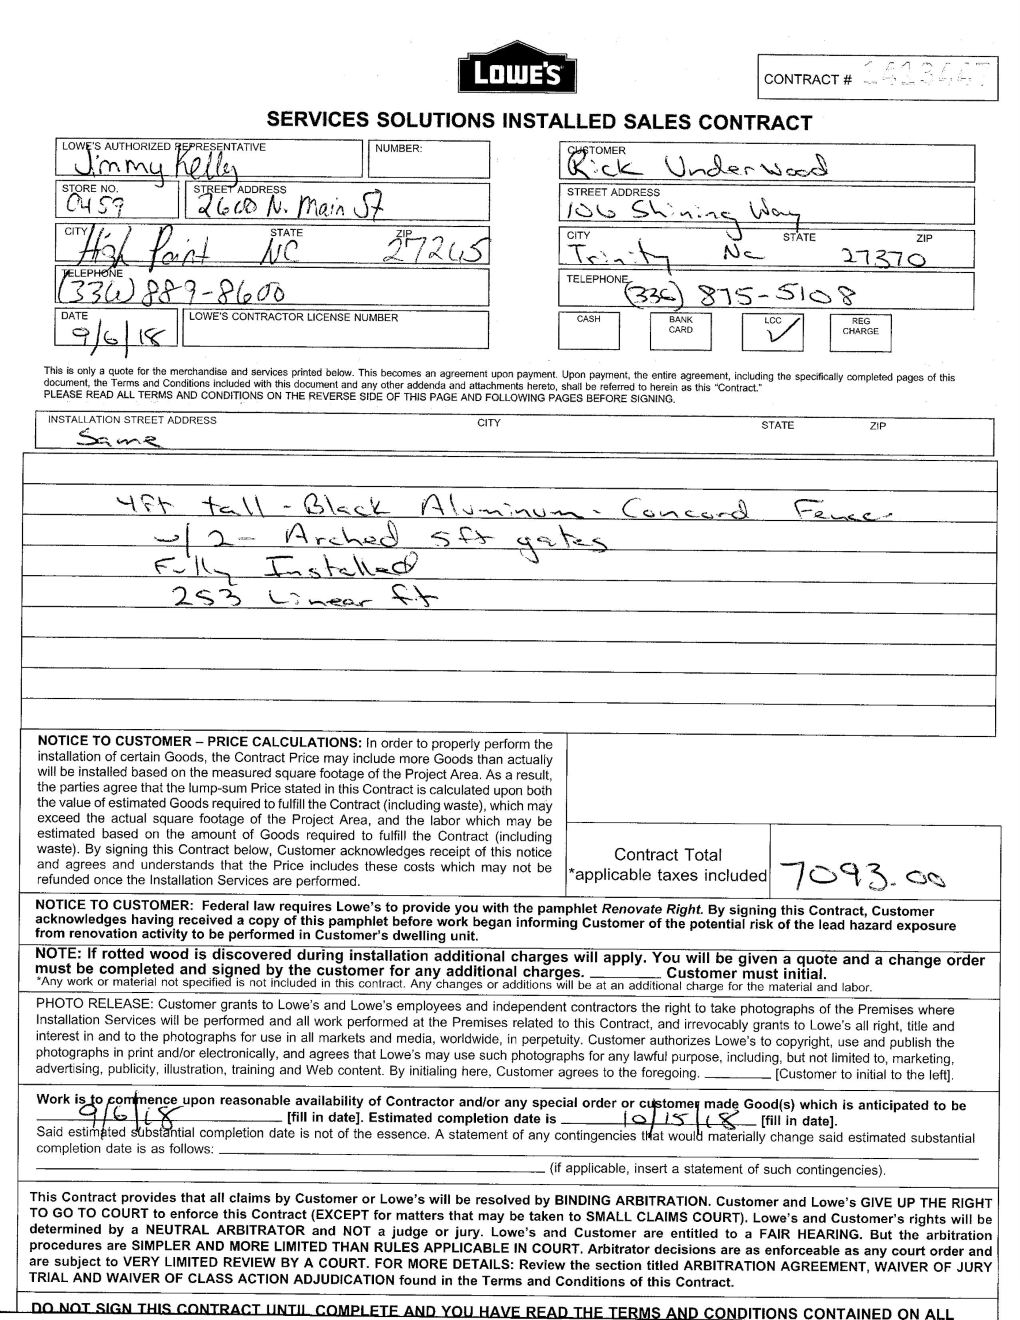 LOWE'S
CONTRACT # 1413447
SERVICES SOLUTIONS INSTALLED SALES CONTRACT
LOWE'S AUTHORIZED REPRESENTATIVE
Jimmy Kelley
NUMBER:
CUSTOMER
Rick Underwood
STORE NO.
0459
STREET ADDRESS
2600 N. Main St
STREET ADDRESS
106 Shining Way
CITY STATE ZIP
High Point NC 27265
CITY STATE ZIP
Trinity NC 27370
TELEPHONE
(336) 889-8600
TELEPHONE
(336) 875-5108
DATE
9/6/18
LOWE'S CONTRACTOR LICENSE NUMBER
CASH
BANK CARD
LCC ✓
REG CHARGE
This is only a quote for the merchandise and services printed below. This becomes an agreement upon payment. Upon payment, the entire agreement, including the specifically completed pages of this
document, the Terms and Conditions included with this document and any other addenda and attachments hereto, shall be referred to herein as this "Contract."
PLEASE READ ALL TERMS AND CONDITIONS ON THE REVERSE SIDE OF THIS PAGE AND FOLLOWING PAGES BEFORE SIGNING.
INSTALLATION STREET ADDRESS CITY STATE ZIP
Same
4ft tall - Black Aluminum - Concord Fence
w/ 2 - Arched 5ft gates
Fully Installed
253 Linear ft
NOTICE TO CUSTOMER – PRICE CALCULATIONS: In order to properly perform the
installation of certain Goods, the Contract Price may include more Goods than actually
will be installed based on the measured square footage of the Project Area. As a result,
the parties agree that the lump-sum Price stated in this Contract is calculated upon both
the value of estimated Goods required to fulfill the Contract (including waste), which may
exceed the actual square footage of the Project Area, and the labor which may be
estimated based on the amount of Goods required to fulfill the Contract (including
waste). By signing this Contract below, Customer acknowledges receipt of this notice
and agrees and understands that the Price includes these costs which may not be
refunded once the Installation Services are performed.
Contract Total
*applicable taxes included
7093.00
NOTICE TO CUSTOMER: Federal law requires Lowe's to provide you with the pamphlet Renovate Right. By signing this Contract, Customer
acknowledges having received a copy of this pamphlet before work began informing Customer of the potential risk of the lead hazard exposure
from renovation activity to be performed in Customer's dwelling unit.
NOTE: If rotted wood is discovered during installation additional charges will apply. You will be given a quote and a change order
must be completed and signed by the customer for any additional charges. ________ Customer must initial.
*Any work or material not specified is not included in this contract. Any changes or additions will be at an additional charge for the material and labor.
PHOTO RELEASE: Customer grants to Lowe's and Lowe's employees and independent contractors the right to take photographs of the Premises where
Installation Services will be performed and all work performed at the Premises related to this Contract, and irrevocably grants to Lowe's all right, title and
interest in and to the photographs for use in all markets and media, worldwide, in perpetuity. Customer authorizes Lowe's to copyright, use and publish the
photographs in print and/or electronically, and agrees that Lowe's may use such photographs for any lawful purpose, including, but not limited to, marketing,
advertising, publicity, illustration, training and Web content. By initialing here, Customer agrees to the foregoing. ________ [Customer to initial to the left].
Work is to commence upon reasonable availability of Contractor and/or any special order or customer made Good(s) which is anticipated to be
9/6/18 [fill in date]. Estimated completion date is 10/15/18 [fill in date].
Said estimated substantial completion date is not of the essence. A statement of any contingencies that would materially change said estimated substantial
completion date is as follows: ________
________ (if applicable, insert a statement of such contingencies).
This Contract provides that all claims by Customer or Lowe's will be resolved by BINDING ARBITRATION. Customer and Lowe's GIVE UP THE RIGHT
TO GO TO COURT to enforce this Contract (EXCEPT for matters that may be taken to SMALL CLAIMS COURT). Lowe's and Customer's rights will be
determined by a NEUTRAL ARBITRATOR and NOT a judge or jury. Lowe's and Customer are entitled to a FAIR HEARING. But the arbitration
procedures are SIMPLER AND MORE LIMITED THAN RULES APPLICABLE IN COURT. Arbitrator decisions are as enforceable as any court order and
are subject to VERY LIMITED REVIEW BY A COURT. FOR MORE DETAILS: Review the section titled ARBITRATION AGREEMENT, WAIVER OF JURY
TRIAL AND WAIVER OF CLASS ACTION ADJUDICATION found in the Terms and Conditions of this Contract.
DO NOT SIGN THIS CONTRACT UNTIL COMPLETE AND YOU HAVE READ THE TERMS AND CONDITIONS CONTAINED ON ALL